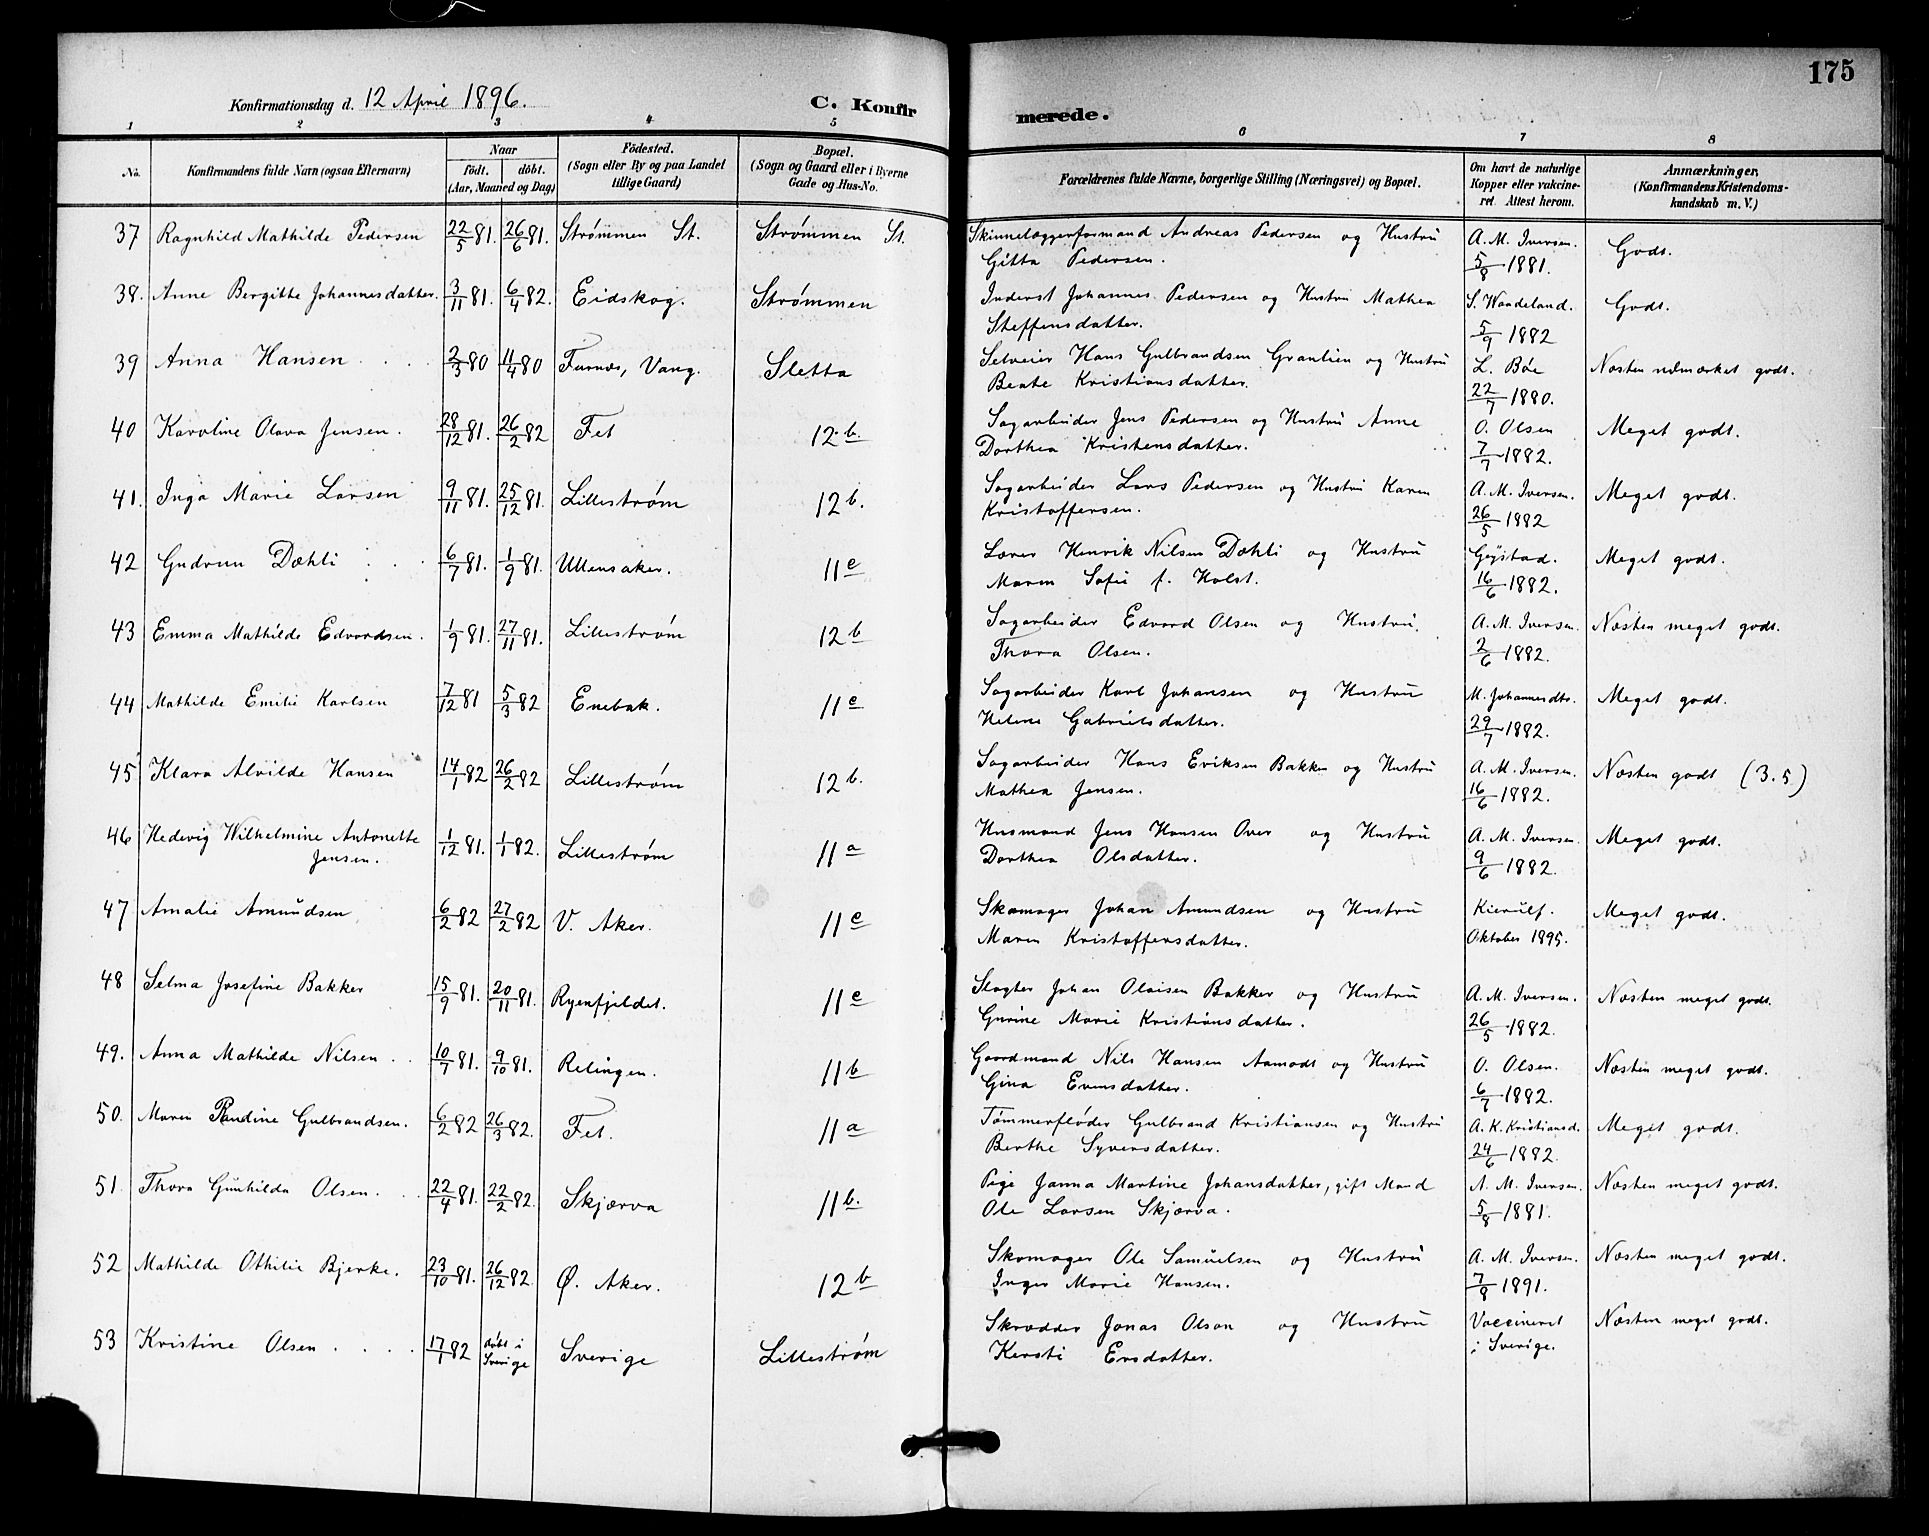 175
Konfirmationsdag d. 12 April 1896. C. Konfirmerede.
1 2 3 4 5 6 7 8
No. Konfirmandens fulde Navn (ogsaa Efternavn) Naar født. døbt. (Aar, Maaned og Dag) Fødested. (Sogn eller By og paa Landet tillige Gaard) Bopæl. (Sogn og Gaard eller i Byerne Gade og Hus-No. Forældrenes fulde Navne, borgerlige Stilling (Næringsvei) og Bopæl. Om havt de naturlige Kopper eller vakcineret. Attest herom. Anmærkninger. (Konfirmandens Kristendomskundskab m. V.)
37 Ragnhild Mathilde Pedersen 22/5 81. 26/6 81. Strømmen St. Strømmen St. Skinnelæggerformand Andreas Pedersen og Hustru A. M. Iversen. Godt.
Gitta Pedersen. 5/8 1881.
38. Anne Bergitte Johannesdatter. 3/11 81. 6/4 82. Eidskog. Strømmen Inderst Johannes Pedersen og Hustru Mathea S. Waadeland. Godt.
Steffensdatter. 5/9 1882
39 Anna Hansen 2/3 80 11/4 80 Furnes, Vang. Sletta Selveier Hans Gulbrandsen Granlien og Hustru L. Bøe Næsten udmærket godt.
Beate Kristiansdatter. 22/7 1880.
40 Karoline Olava Jensen. 28/12 81. 26/2 82 Fet 12 b. Sagarbeider Jens Pedersen og Hustru Anne O. Olsen Meget godt.
Dorthea Kristensdatter. 7/7 1882.
41. Inga Marie Larsen 9/11 81. 25/12 81. Lillestrøm 12 b. Sagarbeider Lars Pedersen og Hustru Karen A. M. Iversen. Meget godt.
Kristoffersen. 26/5 1882
42 Gudrun Dæhli 6/7 81. 1/9 81. Ullensaker. 11 e Lærer Henrik Nilsen Dæhli og Hustru Gystad. Meget godt.
Maren Sofie f. Holst. 16/6 1882.
43 Emma Mathilde Edvardsen. 1/9 81. 27/11 81. Lillestrøm 12 b Sagarbeider Edvard Olsen og Hustru A. M. Iversen. Næsten meget godt.
Thora Olsen. 2/6 1882.
44 Mathilde Emilie Karlsen 7/12 81 5/3 82 Enebak. 11 e Sagarbeider Karl Johansen og Hustru M. Johannesdtr. Meget godt.
Helene Gabrielsdatter. 29/7 1882.
45 Klara Alvilde Hansen 14/1 82 26/2 82 Lillestrøm 12 b. Sagarbeider Hans Eriksen Bakken og Hustru A. M. Iversen. Næsten godt (3.5)
Mathea Jensen. 16/6 1882.
46 Hedevig Wilhelmine Antonette 1/12 81. 1/1 82. Lillestrøm 11 a Husmand Jens Hansen Over og Hustru A. M. Iversen. Meget godt.
Jensen. Dorthea Olsdatter. 9/6 1882.
47 Amalie Amundsen 6/2 82 27/2 82 V. Aker. 11 e Skomager Johan Amundsen og Hustru Kierulf. Meget godt.
Maren Kristoffersdatter. Oktober 1895.
48 Selma Josefine Bakker 15/9 81. 20/11 81. Ryenfjeldet. 11 e Slagter Johan Olaisen Bakker og Hustru A. M. Iversen. Næsten meget godt.
Gurine Marie Kristiansdatter. 26/5 1882.
49. Anna Mathilde Nilsen 10/7 81. 9/10 81. Relingen. 11 b Gaardmand Nils Hansen Aamodt og Hustru O. Olsen. Næsten meget godt.
Gina Evensdatter. 6/7 1882.
50. Maren Pandine Gulbrandsen. 6/2 82 26/3 82. Fet. 11 a Tømmerfløder Gulbrand Kristiansen og Hustru A. K. Kristiansd. Meget godt.
Berthe Syversdatter. 24/6 1882.
51. Thora Gunhilda Olsen. 22/4 81. 22/2 82. Skjærva 11 b. Pige Janna Martine Johansdatter, gift Mand A. M. Iversen. Næsten meget godt.
Ole Larsen Skjærva. 5/8 1881.
52 Mathilde Othilie Bjerke. 23/10 81. 26/12 82. Ø. Aker. 12 b Skomager Ole Samuelsen og Hustru A. M. Iversen. Næsten meget godt.
Inger Marie Hansen. 7/8 1891.
53 Kristine Olsen 17/1 82 døbt i Sverige Sverige Lillestrøm Skrædder Jonas Olson og Hustru Vaccineret Næsten meget godt.
Kersti Ersdatter. i Sverige.